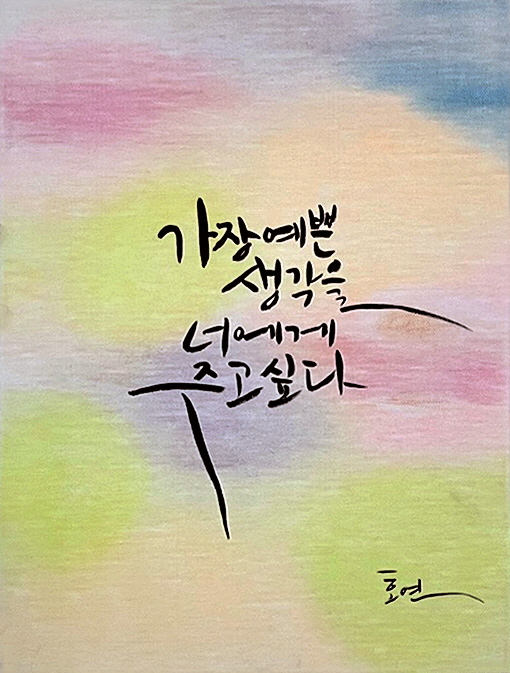 가장예쁜
생각을
너에게
주고싶다
호연